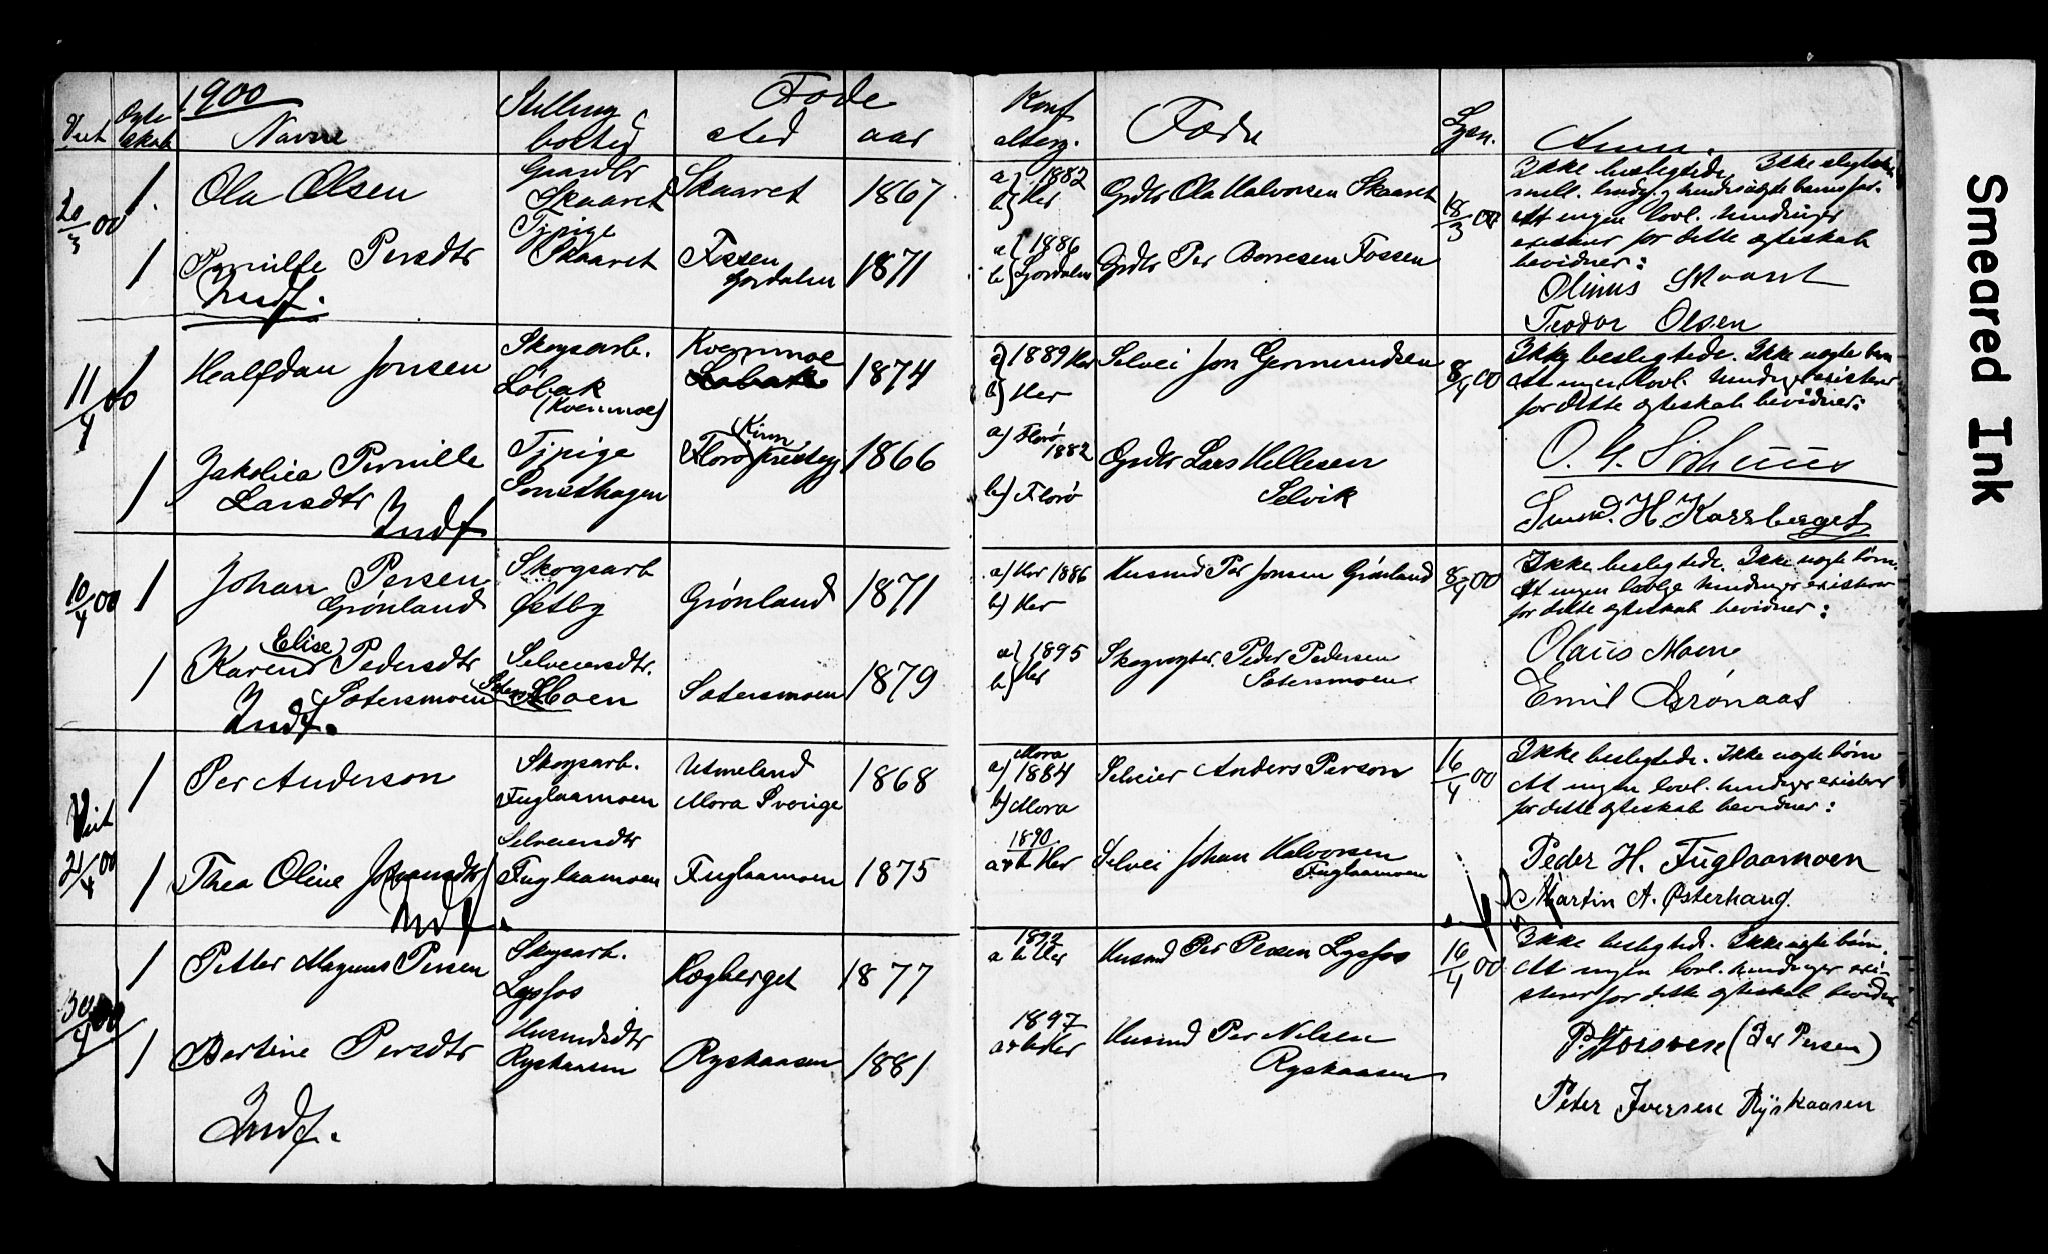 1900
Viet Ægteskab Navne Stilling bosted Føde sted aar Konf. attesg. Fædre Lysn. Anm.
20/3 00
1. Ola Olsen Gaardbr Skaaret Skaaret 1867 a) 1882 b) Her Grdbr Ola Halvorsen Skaaret 18/3 00
Ikke beslegtede. Ikke
At ingen lovl. hindringer
existerer for dette ægteskab
bevidner:
1 Pernille Persdtr Tjpige Skaaret Fossen Ljørdalen 1871 a) 1886 b) Ljørdalen Grdbr Per Borresen Fossen
Indf.
Olinus Skaaret
Teodor Olsen
11/4 00
1 Halfdan Jonsen Skogsarb. Løbak (Kvernmoe) Kvernmoe 1874 a) 1889 Her b) Her Selvei Jon Germundsen 8/4 00
Ikke beslegtede. Ikke uægte børn
At ingen lovl. hindringer existerer
for dette ægteskab bevidner:
1 Jakobiea Pernille Larsdtr Tjpige Florø Kinn prestegj 1866 a) Florø 1882 b) Florø Grdbr Lars Hellesen Selvik
Indf
10/4 00
1 Johan Persen Grønland Skogsarb Østby Grønland 1871 a) Her 1886 b) Her Husmd Per Jonsen Grønland 8/4 00
Ikke beslegtede. Ikke uægte børn.
At ingen lovlige hindringer existerer
for dette ægteskab bevidner:
1 Karen Elise Pedersdtr Sætersmoen Selveiersdtr. Moen Sætersmoen 1879 a) 1895 b) Her Skogvogter Peder Pedersen Sætersmoen
Indf.
Olaus Moen
Emil Grønaas
Viet 21/4 00
1 Per Anderson Skogsarb. Fuglaamoen Utmeland Mora Sverige 1868 a) Mora 1884 b) Mora Selveier Anders Person 16/4 00
Ikke beslegtede. Ikke uægte børn
At ingen lovl. hindringer existerer
for dette ægteskab bevidner:
1 Thea Oline Johansdtr Selveiersdtr Fuglaamoen Fuglaamoen 1875 1890 a & b Her Selvei Johan Halvorsen Fuglaamoen
Indf.
Peder H. Fuglaamoen
Martin A. Østerhaug.
30/4 00
1 Petter Magnus Persen Skogsarb. Lysfos Lægberget 1877 1892 a b Her Husmd Per Persen Lysfos 16/4 00
Ikke beslegtede. Ikke uægte børn.
At ingen lovl. hindringer exi-
sterer for dette ægteskab bevidner
1 Bertine Persdtr Husmdsdtr Ryskaasen Ryskaasen 1881 1897 a & b Her Husmd Per Nilsen Ryskaasen
Indf.
(Per Persen)
Peter Iversen Ryskaasen
Smeared Ink